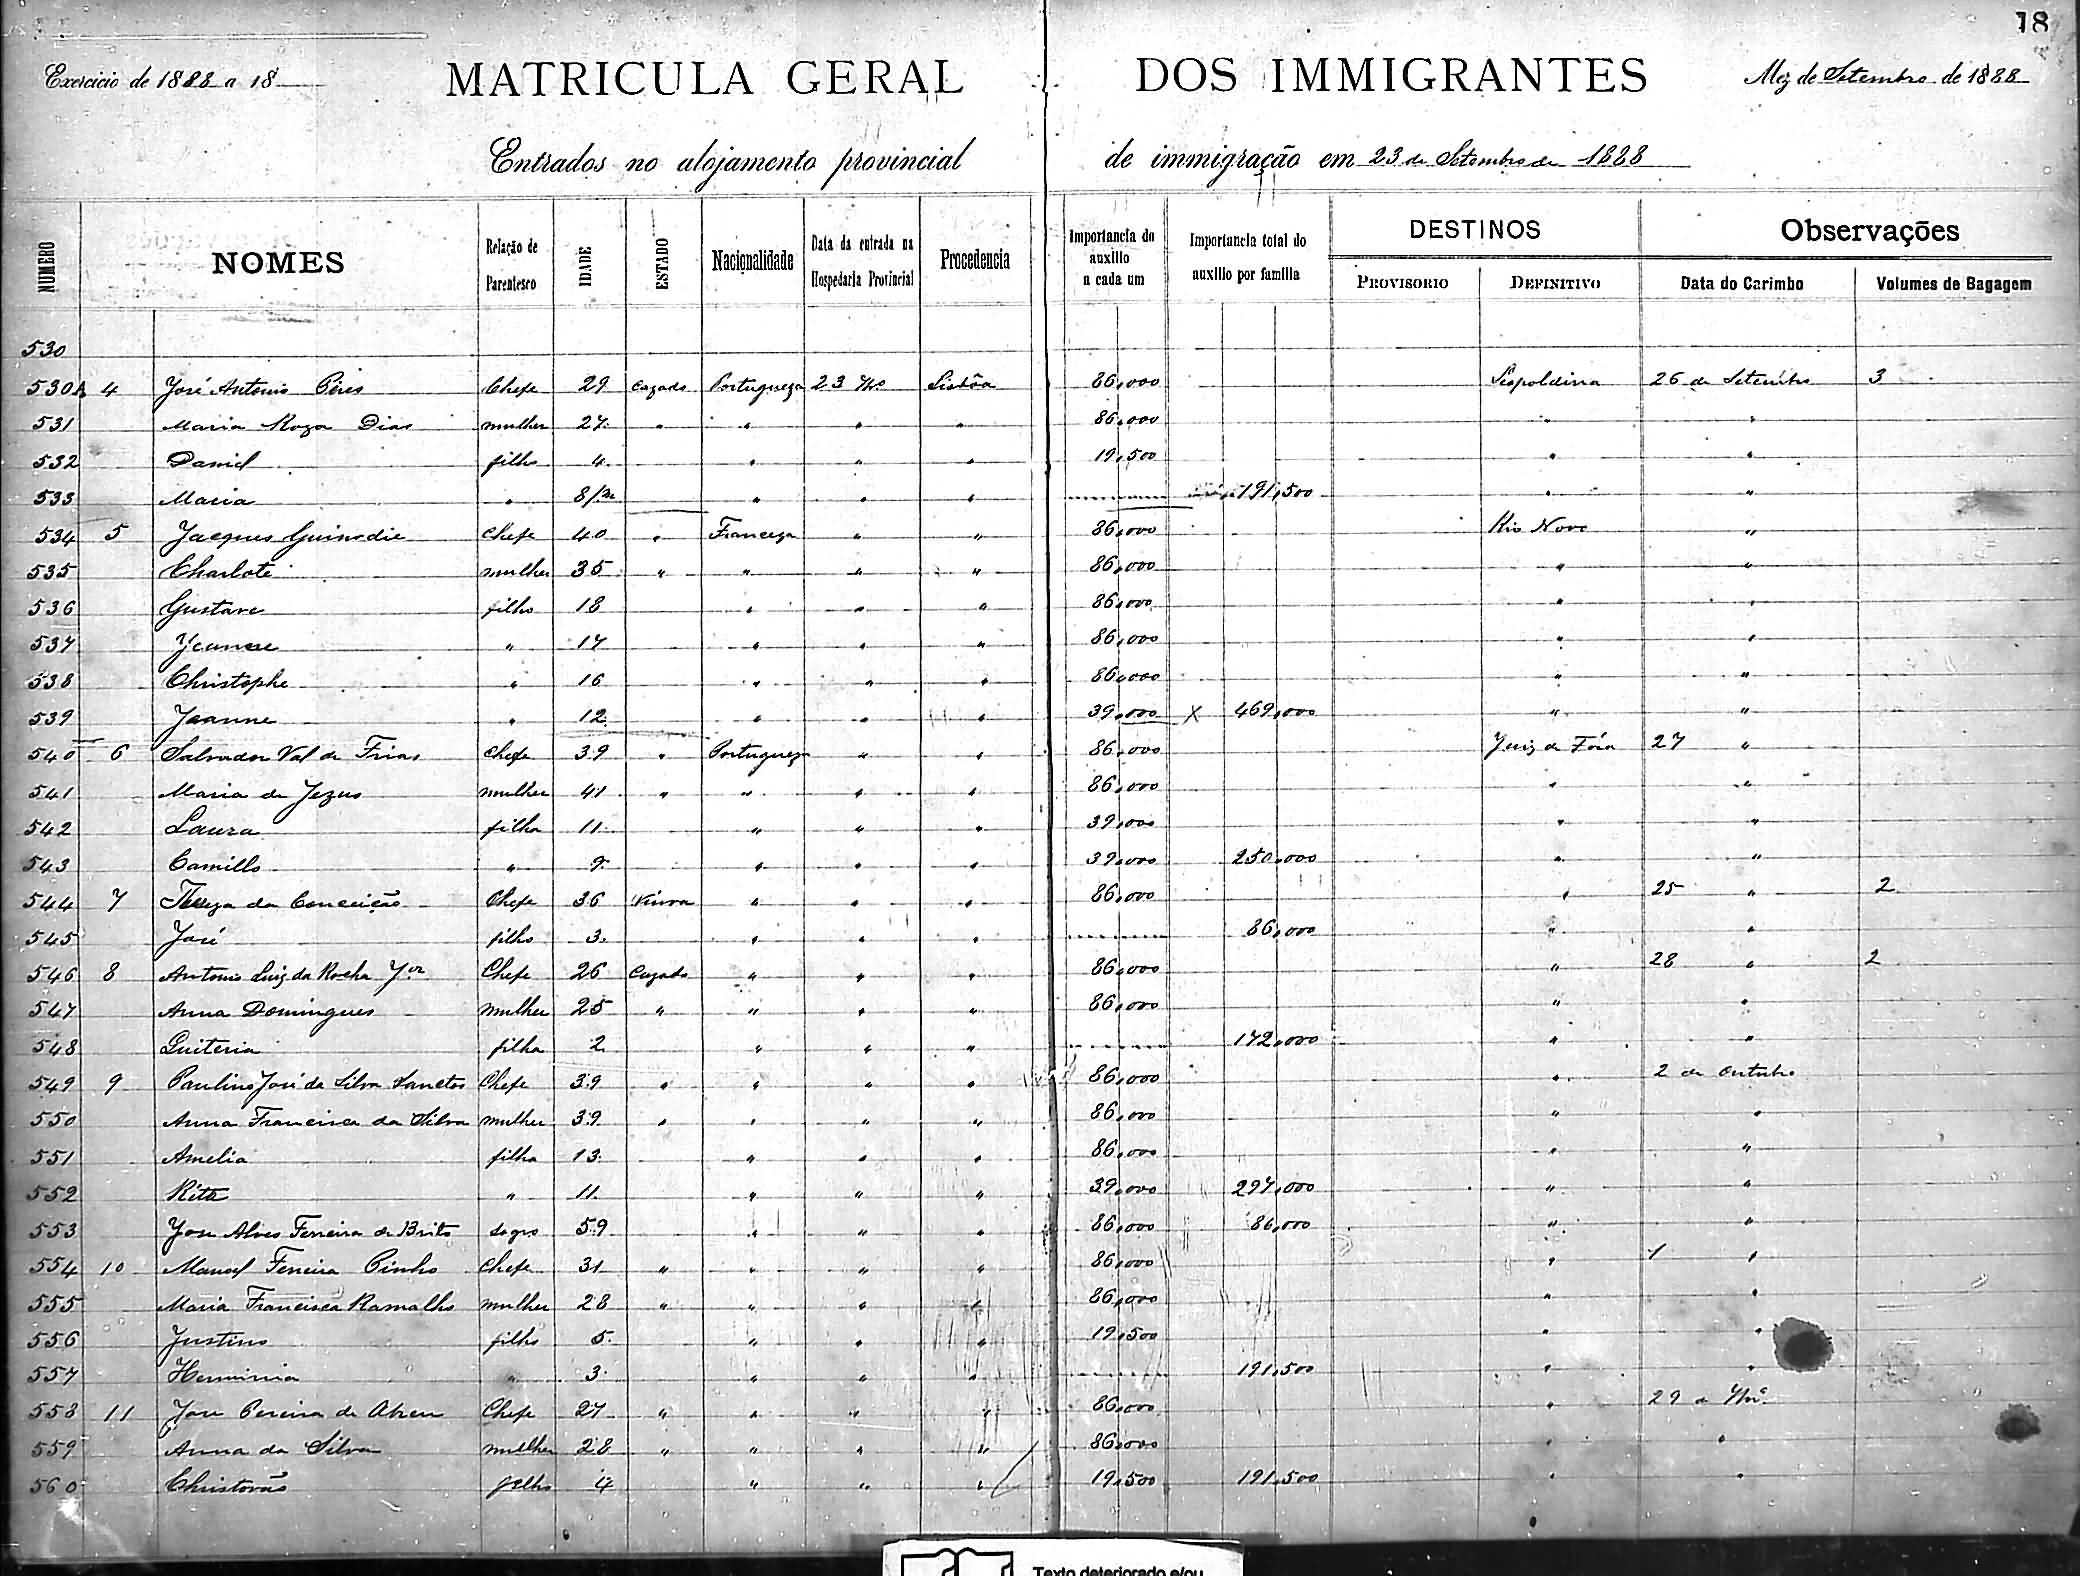 18
Exercicio de 1888 a 18
MATRICULA GERAL DOS IMMIGRANTES
Mez de Setembro de 1888
Entrados no alojamento provincial de immigração em 23 de Setembro de 1888
NUMERO NOMES Relação de Parentesco IDADE ESTADO Nacionalidade Data da entrada na Hospedaria Provincial Procedencia Importancia do auxilio a cada um Importancia total do auxilio por familia DESTINOS PROVISORIO DEFINITIVO Observações Data do Carimbo Volumes de Bagagem
530
530A 4 José Antonio Péres Chefe 29 Cazado Portugueza 23 7bro Lisbôa 86,000 Leopoldina 26 de Setembro 3
531 Maria Roza Dias mulher 27 " " " " 86,000 " "
532 Daniel filho 4 " " " 19,500 " "
533 Maria " 8/m " " " 191,500 " "
534 5 Jacques Guinodie Chefe 40 " Franceza " " 86,000 Rio Novo "
535 Charlote mulher 35 " " " " 86,000 " "
536 Gustave filho 18 " " " 86,000 " "
537 " 17 " " " 86,000 " "
538 Christophe " 16 " " " 86,000 " "
539 Jeanne " 12 " " " 39,000 X 469,000 " "
540 6 Salvador Val de Frias Chefe 39 " Portugueza " " 86,000 Juiz de Fóra 27 "
541 Maria de Jezus mulher 41 " " " " 86,000 " "
542 Laura filha 11 " " " 39,000 " "
543 Camillo " 9 " " " 39,000 250,000 " "
544 7 Thereza da Conceição Chefe 36 Viuva " " " 86,000 " 25 " 2
545 José filho 3 " " " 86,000 " "
546 8 Antonio Luiz da Rocha Jor Chefe 26 Cazado " " " 86,000 " 28 " 2
547 Anna Domingues mulher 25 " " " " 86,000 " "
548 Quiteria filha 2 " " " 172,000 " "
549 9 Paulino José da Silva Sanctos Chefe 39 " " " " 86,000 " 2 de Outubro
550 Anna Francisca da Silva mulher 39 " " " " 86,000 " "
551 Amelia filha 13 " " " 86,000 " "
552 Rita " 11 " " " 39,000 297,000 " "
553 Jose Alves Ferreira de Brito sogro 59 " " " 86,000 86,000 " "
554 10 Manoel Ferreira Pinho Chefe 31 " " " " 86,000 " 1 "
555 Maria Francisca Ramalho mulher 28 " " " " 86,000 " "
556 Justino filho 5 " " " 19,500 " "
557 Herminia " 3 " " " 191,500 " "
558 11 Jose Pereira de Abreu Chefe 27 " " " " 86,000 " 29 de 7bro
559 Anna da Silva mulher 28 " " " " 86,000 " "
560 Christovão filho 4 " " " 19,500 191,500 " "
Texto deteriorado e/ou